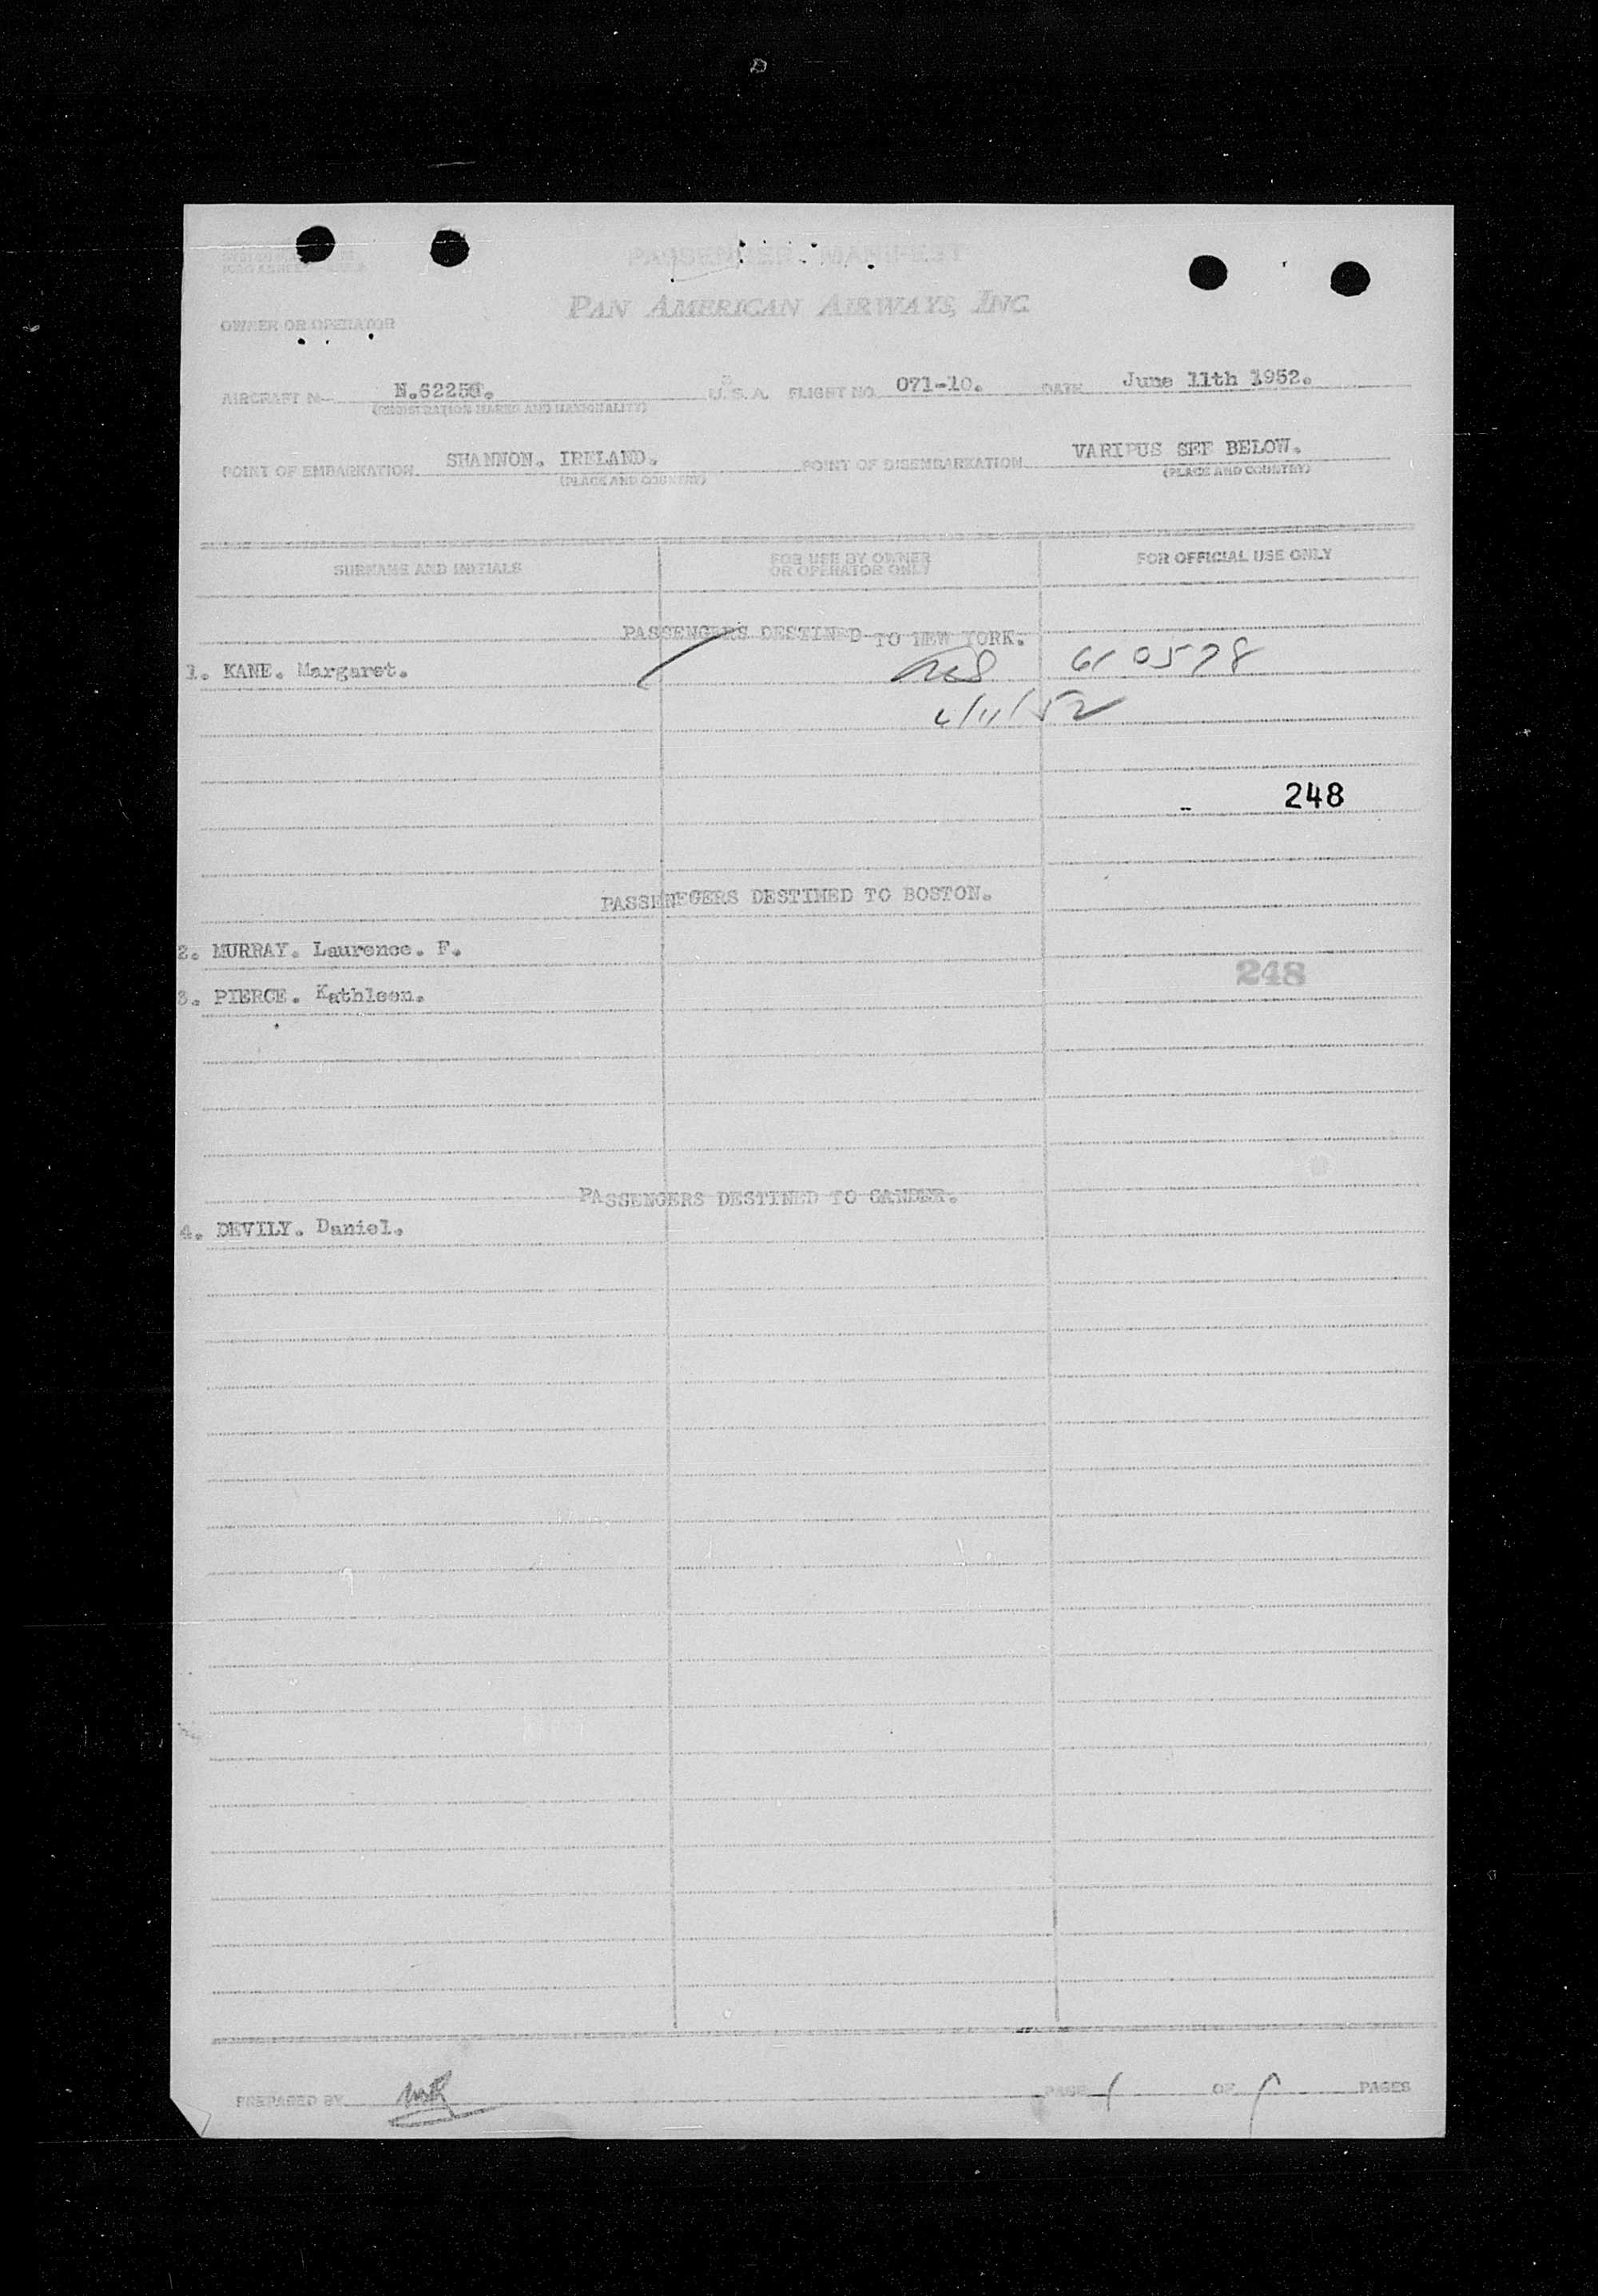 PASSENGER MANIFEST
PAN AMERICAN AIRWAYS, INC.
OWNER OR OPERATOR
AIRCRAFT No U. S. A. FLIGHT NO. 071-10. DATE June 11th 1952.
(REGISTRATION MARKS AND NATIONALITY)
POINT OF EMBARKATION SHANNON. IRELAND. POINT OF DISEMBARKATION VARIPUS SEE BELOW.
(PLACE AND COUNTRY) (PLACE AND COUNTRY)
SURNAME AND INITIALS FOR USE BY OWNER OR OPERATOR ONLY FOR OFFICIAL USE ONLY
PASSENGERS DESTINED TO NEW YORK.
1. KANE. Margaret. 610578
6/11/52
248
PASSENEGERS DESTINED TO BOSTON.
2. MURRAY. Laurence. F.
248
3. PIERCE. Kathleen.
PASSENGERS DESTINED TO GANDER.
4. DEVILY. Daniel.
PREPARED BY PAGE 1 OF 1 PAGES